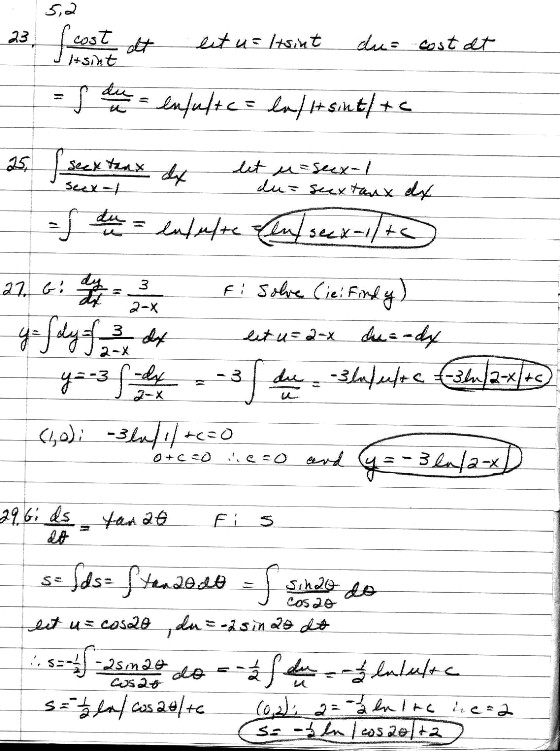 5,2
23. ∫ cost/(1+sint) dt let u = 1+sint du = cost dt
= ∫ du/u = ln|u|+c = ln|1+sint|+c
25. ∫ secx tanx/(secx-1) dx let u = secx-1
du = secx tanx dx
= ∫ du/u = ln|u|+c = ln|secx-1|+c
27. G: dy/dx = 3/(2-x) F: Solve (ie: Find y)
y = ∫dy = ∫ 3/(2-x) dx let u = 2-x du = -dx
y = -3 ∫ -dx/(2-x) = -3 ∫ du/u = -3ln|u|+c = -3ln|2-x|+c
(1,0): -3ln|1|+c=0
0+c=0 ∴ c=0 and y = -3ln|2-x|
29. G: ds/dθ = tan 2θ F: s
s = ∫ds = ∫tan2θdθ = ∫ sin2θ/cos2θ dθ
let u = cos2θ, du = -2sin2θ dθ
∴ s = -1/2 ∫ -2sin2θ/cos2θ dθ = -1/2 ∫ du/u = -1/2 ln|u|+c
s = -1/2 ln|cos2θ|+c (0,2): 2 = -1/2 ln1+c ∴ c=2
s = -1/2 ln|cos2θ|+2